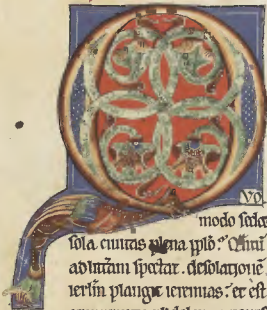 VO
modo sedet
sola ciuitas plena pplo?
ad lr̄am spectat. desolatione
ierlm̄ plangit ieremias. et est